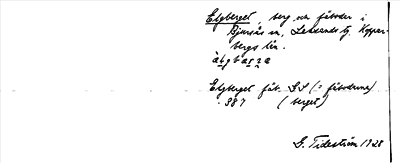 Elgberget, berg och fäbodar i
Bjursås sn, Leksands tg, Koppar-
bergs län.
Elgberget fäb. SS (: fäbodarna)
387 (berget)
G. Tideström 1928